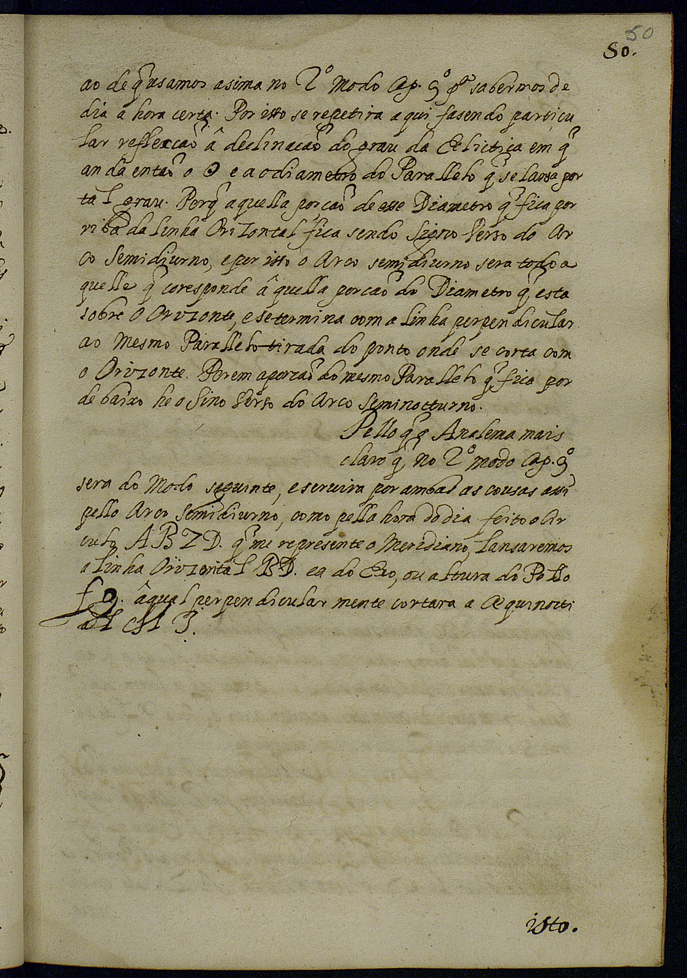 50
50.
ao de q̃ usamos asima no 2º Modo Cap. 9º pª sabermos de
dia a hora certa. Por isto se repetira aqui fasendo particu
lar reflexcaõ â declinacaõ do grau da Eclictica em q̃
anda entaõ o e ao diametro do Parallelo q̃ se lansa por
tal grau. Porq̃ aquella porcaõ de esse Diametro q̃ fica por
riba da linha Orizontal fica sendo Sino Verso do Ar
co Semidiurno, e por isto o Arco semidiurno sera todo a
quelle q̃ coresponde â quella porcaõ do Diametro q̃ esta
sobre o Orizonte, e se termina com a linha perpendicular
ao mesmo Parallelo tirada do ponto onde se corta com
o Orizonte. Porem a porcaõ do mesmo Parallelo q̃ fica por
de baixo he o Sino Verso do Arco Seminocturno.
Pello q̃ Analema mais
claro q̃ no 2º modo Cap. 9º
sera do Modo seguinte, e servira por ambas as cousas
pello Arco Semidiurno, como pella hora do dia feito o Cir
culo ABZD. q̃ me represente o Meridiano, lansaremos
a linha Orizontal BD. e a do Exo, ou altura do Pollo
âqual perpendicularmente cortara a Æquinocti
al
isto.